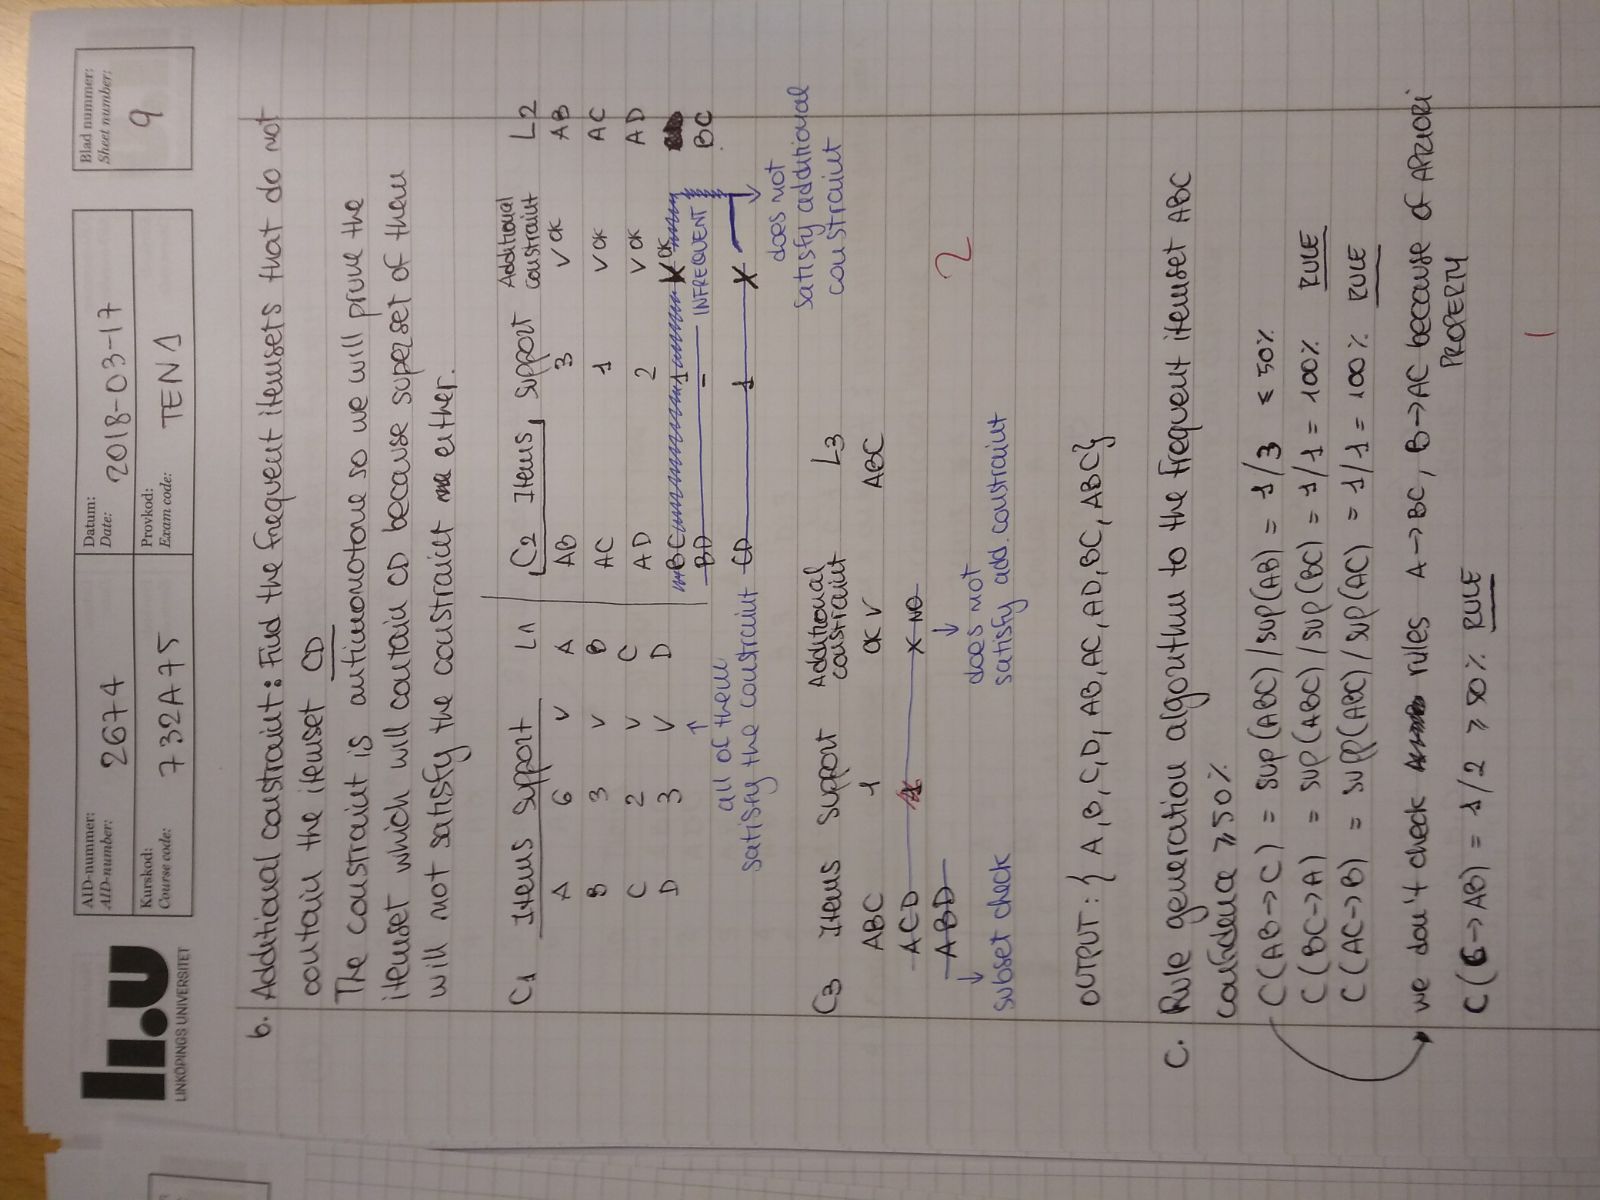 li.u
LINKÖPINGS UNIVERSITET
AID-nummer:
AID-number: 2674
Datum:
Date: 2018-03-17
Blad nummer:
Sheet number:
9
Kurskod:
Course code: 732A75
Provkod:
Exam code: TEN1
b. Additional constraint: Find the frequent itemsets that do not
contain the itemset CD
The constraint is antimonotone so we will prune the
itemset which will contain CD because superset of them
will not satisfy the constraint either.
C1 Items support L1 C2 Items support Additional constraint L2
A 6 v A AB 3 v OK AB
B 3 v B AC 1 v OK AC
C 2 v C AD 2 v OK AD
D 3 v D BC 1 OK
BD - INFREQUENT BC
↑
all of them
satisfy the constraint CD 1 X
does not
satisfy additional
constraint
C3 Items support Additional constraint L3
ABC 1 OK v ABC
ACD 1 X NO
ABD
2
↓ ↓
subset check does not
satisfy add. constraint
OUTPUT: { A, B, C, D, AB, AC, AD, BC, ABC}
C. Rule generation algorithm to the frequent itemset ABC
confidence ⩾ 50%
C(AB→C) = sup(ABC)/sup(AB) = 1/3 ⩽ 50%
C(BC→A) = sup(ABC)/sup(BC) = 1/1 = 100% RULE
C(AC→B) = supp(ABC)/sup(AC) = 1/1 = 100% RULE
we don't check rules A→BC, B→AC because of APRIORI
PROPERTY
C(C→AB) = 1/2 ⩾ 50% RULE
1